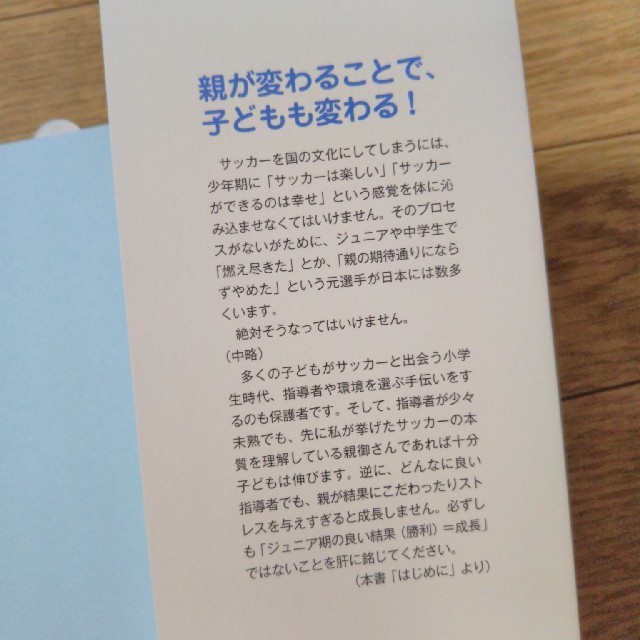 親が変わることで、
子どもも変わる！
サッカーを国の文化にしてしまうには、
少年期に「サッカーは楽しい」「サッカー
ができるのは幸せ」という感覚を体に沁
み込ませなくてはいけません。そのプロセ
スがないがために、ジュニアや中学生で
「燃え尽きた」とか、「親の期待通りになら
ずやめた」という元選手が日本には数多
くいます。
絶対そうなってはいけません。
（中略）
多くの子どもがサッカーと出会う小学
生時代、指導者や環境を選ぶ手伝いをす
るのも保護者です。そして、指導者が少々
未熟でも、先に私が挙げたサッカーの本
質を理解している親御さんであれば十分
子どもは伸びます。逆に、どんなに良い
指導者でも、親が結果にこだわったりスト
レスを与えすぎると成長しません。必ずし
も「ジュニア期の良い結果（勝利）＝成長」
ではないことを肝に銘じてください。
（本書「はじめに」より）